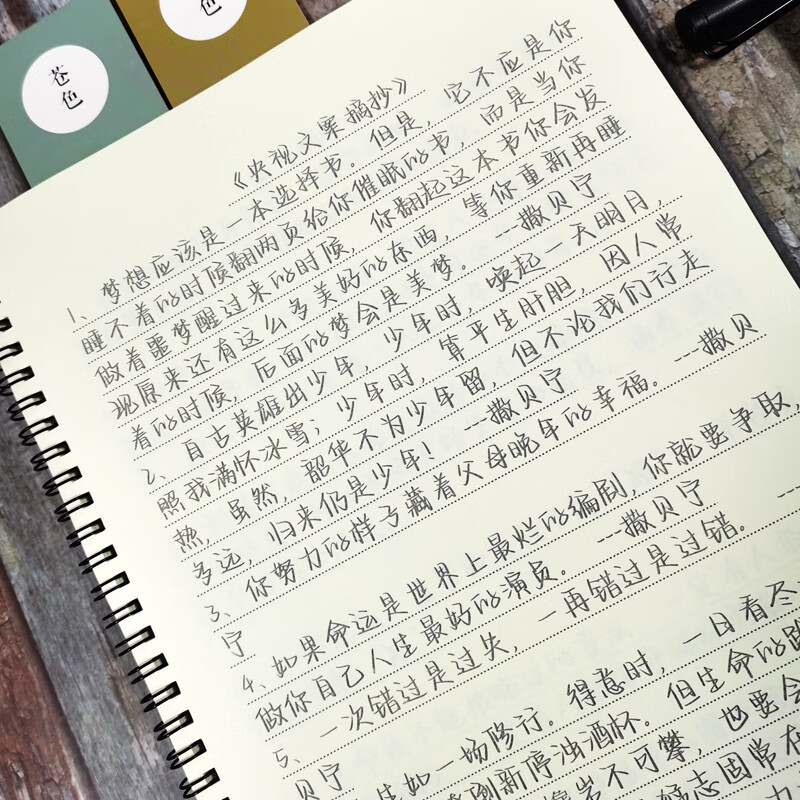 苍色
色
《央视文案摘抄》
1、梦想应该是一本选择书。但是,它不应是你
睡不着的时候翻两页给你催眠的书,而是当你
做着噩梦醒过来的时候,你翻起这本书你会发
现原来还有这么多美好的东西,等你重新再睡
着的时候,后面的梦会是美梦。 --撒贝宁
2、自古英雄出少年,少年时,唤起一天明月,
照我满怀冰雪;少年时,算平生肝胆,因人常
热,虽然,韶华不为少年留,但不论我们行走
多远,归来仍是少年! --撒贝宁
3、你努力的样子藏着父母晚年的幸福。--撒贝
宁
4、如果命运是世界上最烂的编剧,你就要争取,
做你自己人生最好的演员。 --撒贝宁
5、一次错过是过失,一再错过是过错。 --
贝宁
生如一场修行。得意时,一日看尽
倒新停浊酒杯。但生命的跋
岩不可攀,也要会
志固常在